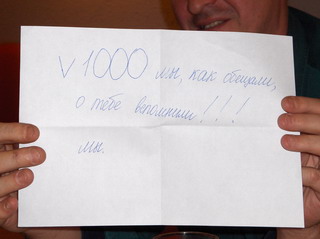 v 1000 мы, как обещали,
о тебе вспомнили!!!
мы.